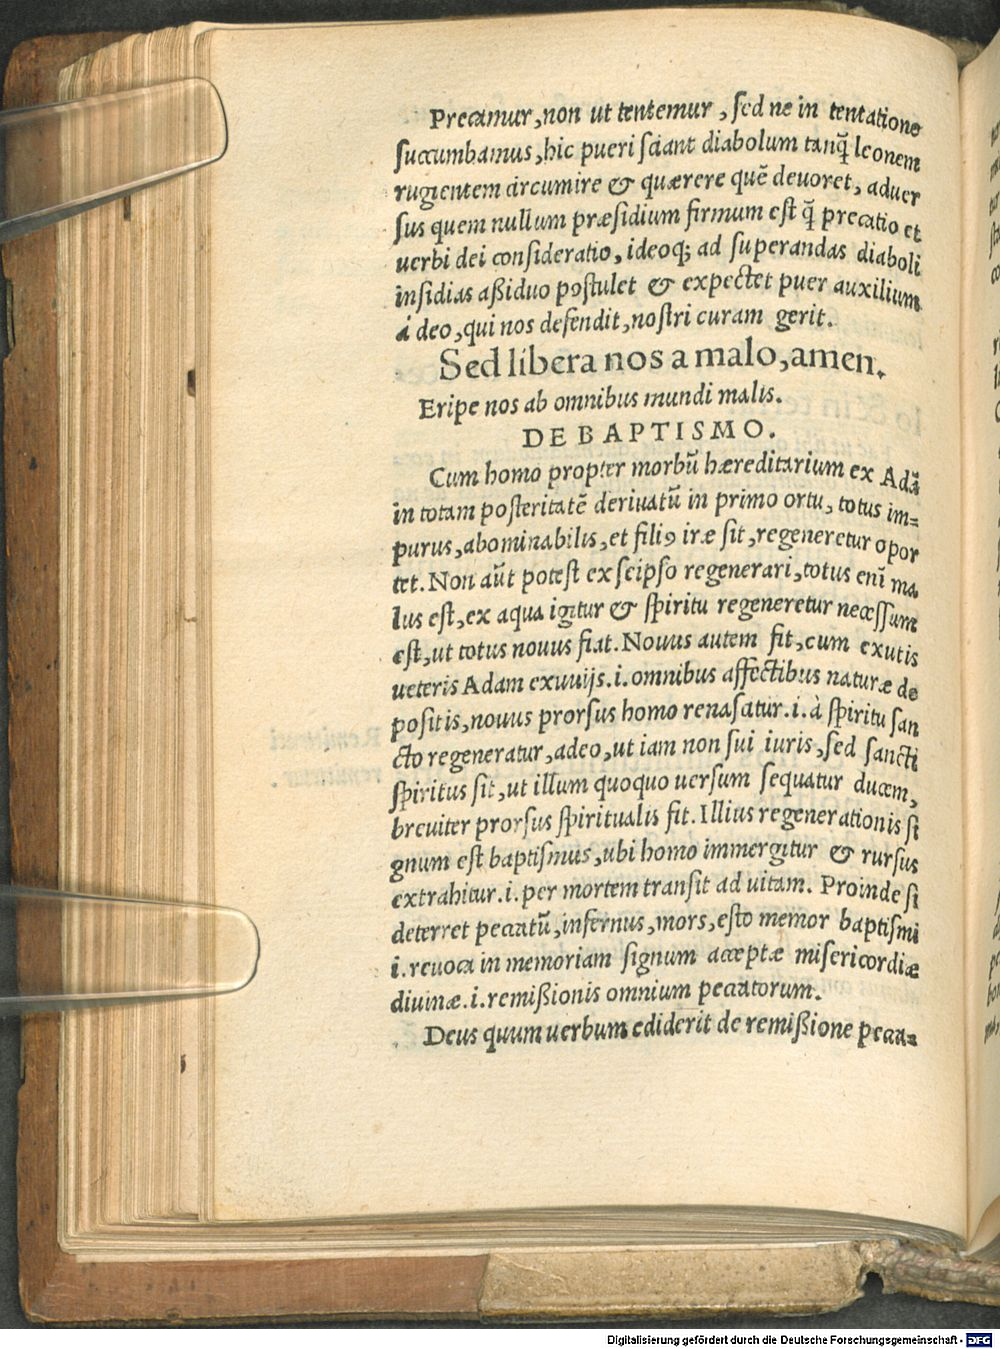 Precamur, non ut tentemur, ſed ne in tentatione
ſuccumbamus, hic pueri ſciant diabolum tanq̃ leonem
rugientem circumire & quærere quẽ deuoret, aduer
ſus quem nullum præſidium firmum eſt q̃ precatio et
uerbi dei conſideratio, ideoq; ad ſuperandas diaboli
inſidias aßiduo poſtulet & expectet puer auxilium
à deo, qui nos defendit, noſtri curam gerit.
Sed libera nos a malo, amen.
Eripe nos ab omnibus mundi malis.
DE BAPTISMO.
Cum homo propter morbũ hæreditarium ex Adã
in totam poſteritatẽ deriuatũ in primo ortu, totus im=
purus, abominabilis, et filiꝰ iræ ſit, regeneretur opor
tet. Non aũt poteſt ex ſeipſo regenerari, totus enĩ ma
lus eſt, ex aqua igitur & ſpiritu regeneretur neceſſum
eſt, ut totus nouus fiat. Nouus autem fit, cum exutis
ueteris Adam exuuijs .i. omnibus affectibus naturæ de
poſitis, nouus prorſus homo renaſcatur .i. à ſpiritu ſan
cto regeneratur, adeo, ut iam non ſui iuris, ſed ſancti
ſpiritus ſit, ut illum quoquo uerſum ſequatur ducem,
breuiter prorſus ſpiritualis fit. Illius regenerationis ſi
gnum eſt baptiſmus, ubi homo immergitur & rurſus
extrahitur .i. per mortem tranſit ad uitam. Proinde ſi
deterret peccatũ, infernus, mors, eſto memor baptiſmi
.i. reuoca in memoriam ſignum acceptæ miſericordiæ
diuinæ .i. remißionis omnium peccatorum.
Deus quum uerbum ediderit de remißione pecca=
Digitalisierung gefördert durch die Deutsche Forschungsgemeinschaft - DFG